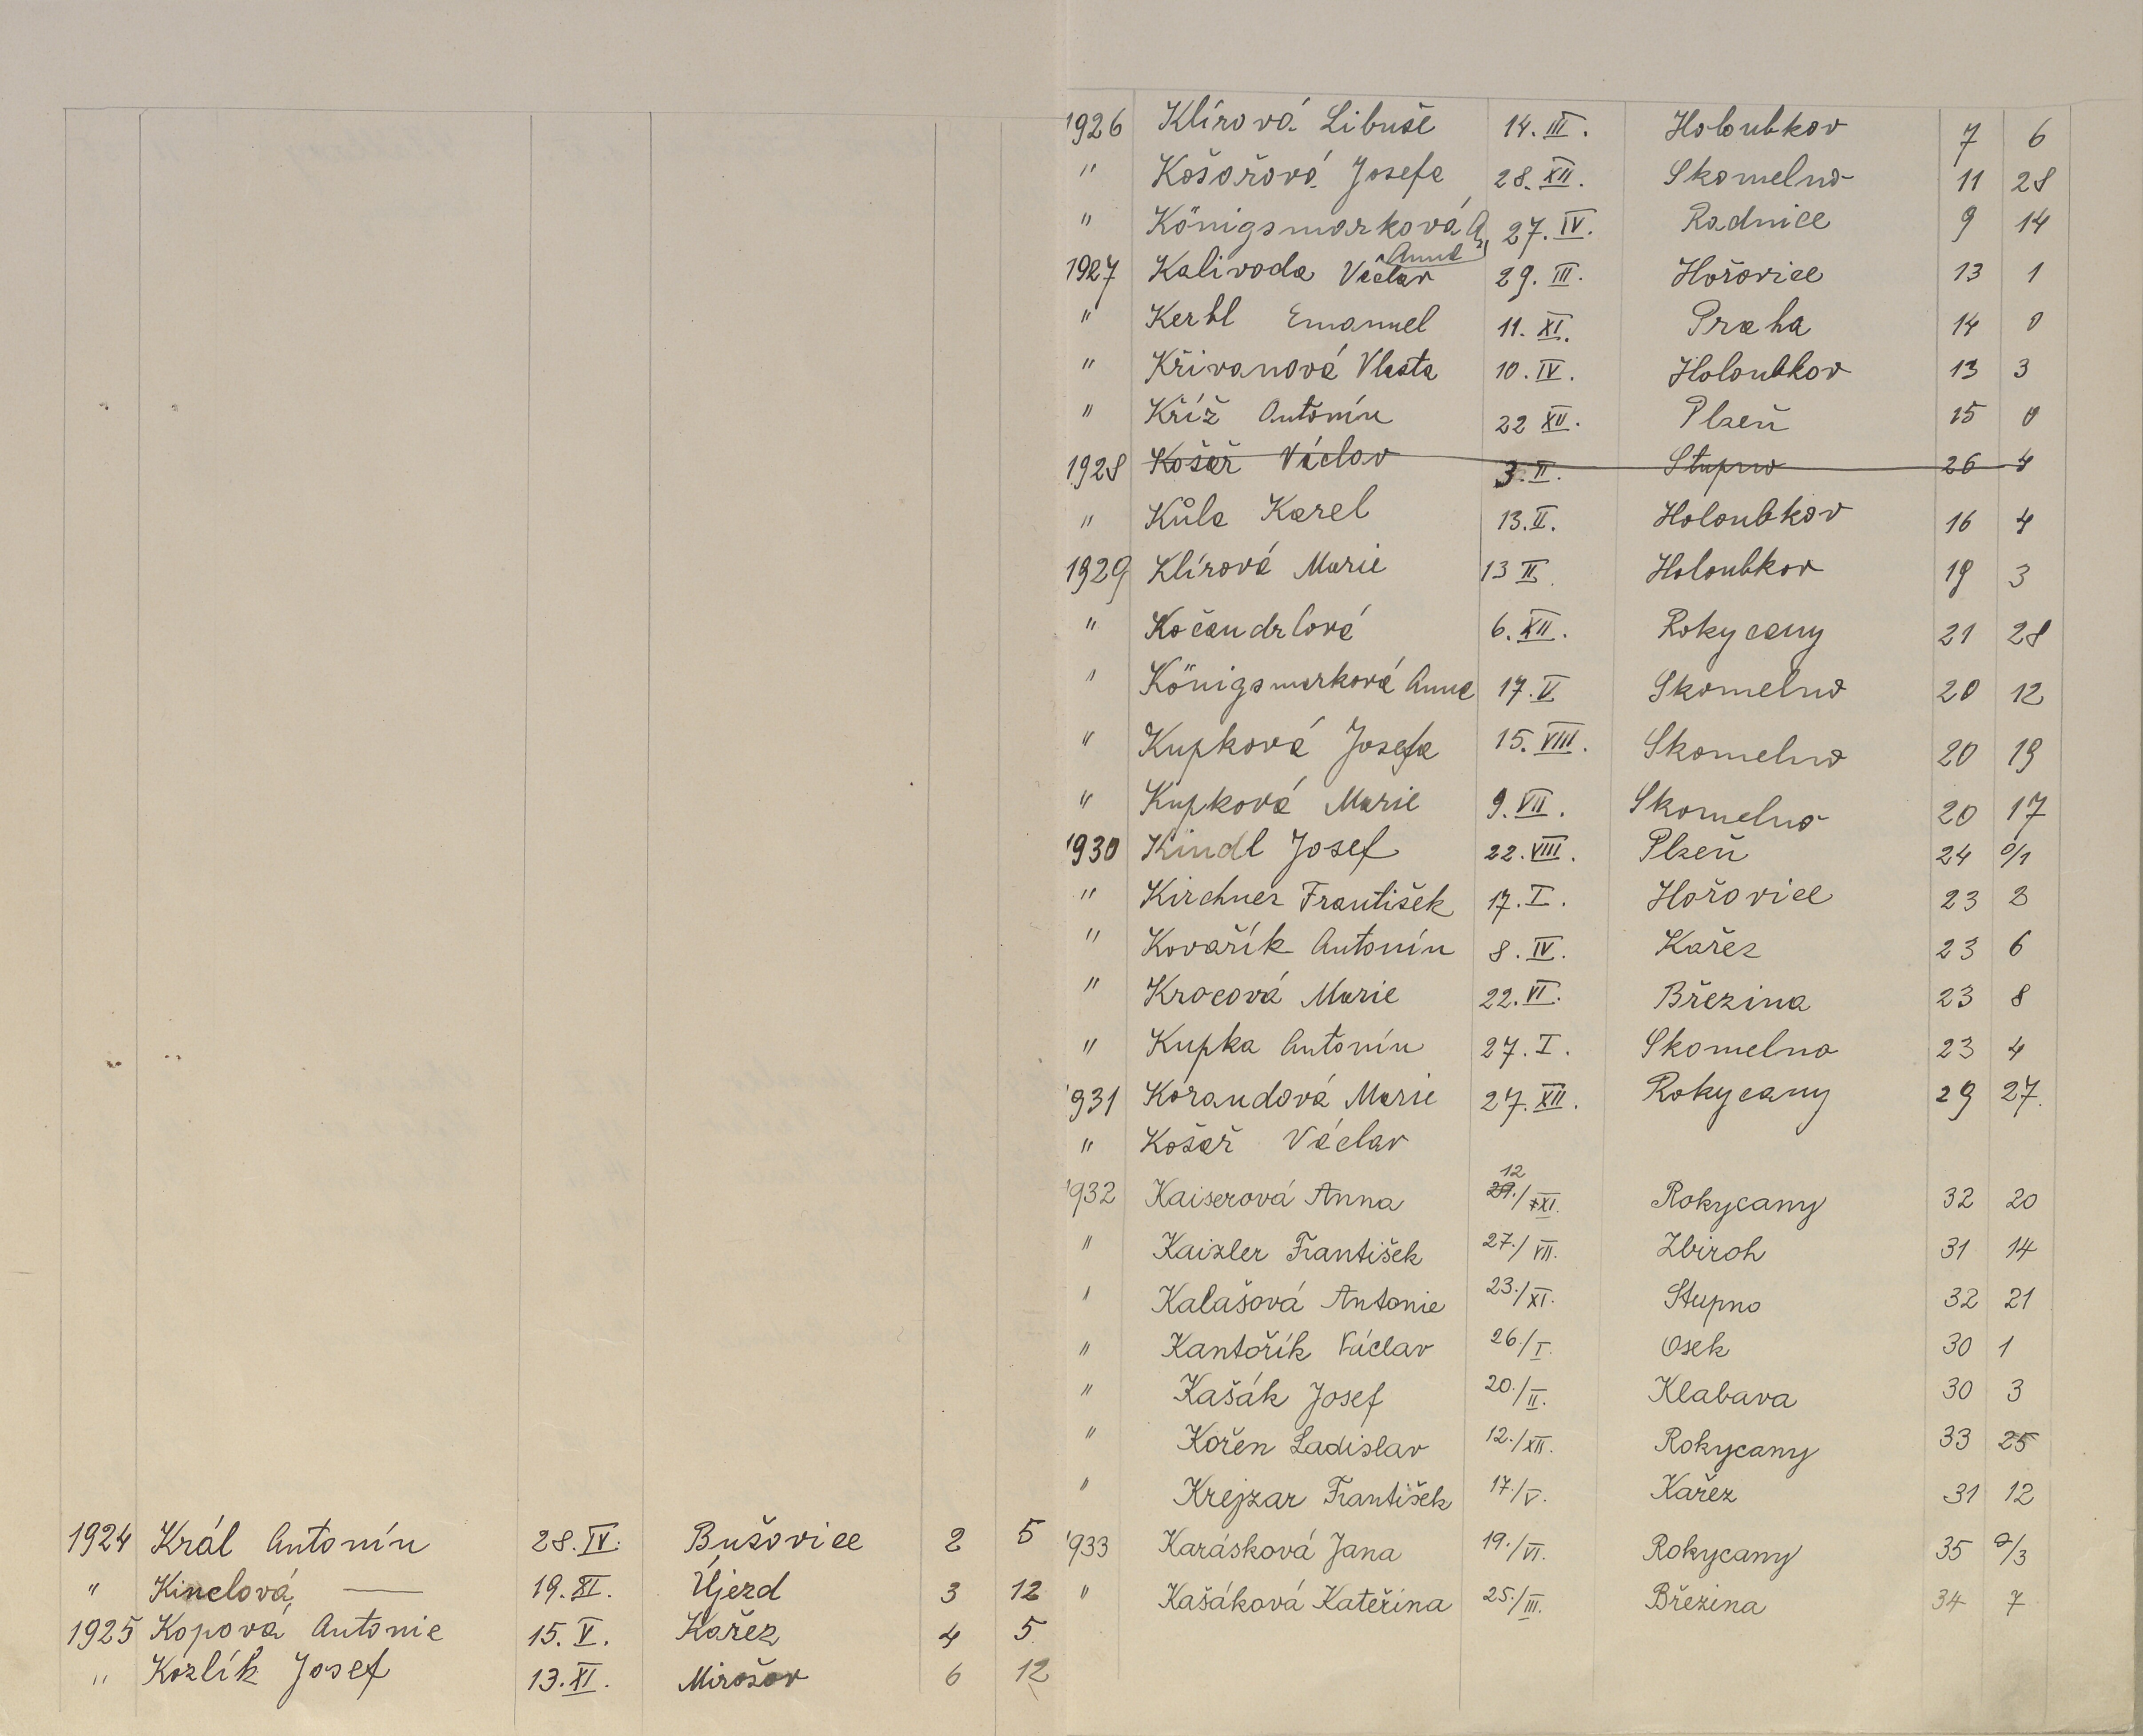 1924 Král Antonín 28. IV. Bušovice 2 5
" Kinclová — 19. XI. Újezd 3 12
1925 Kopová Antonie 15. V. Kařez 4 5
" Kozlík Josef 13. XI. Mirošov 6 12
1926 Klírová Libuše 14. III. Holoubkov 7 6
" Košařová Josefa 28. XII. Skomelno 11 28
" Königsmarková A. 27. IV. Radnice 9 14
Anna
1927 Kalivoda Václav 29. III. Hořovice 13 1
" Kerbl Emanuel 11. XI. Praha 14 0
" Křivanová Vlasta 10. IV. Holoubkov 13 3
" Kříž Antonín 22 XII. Plzeň 15 0
1928 Košař Václav 3. II. Stupno 26 4
" Kůla Karel 13. II. Holoubkov 16 4
1929 Klírová Marie 13 II. Holoubkov 19 3
" Kočandrlová 6. XII. Rokycany 21 28
" Königsmarková Anna 17. V. Skomelno 20 12
" Kupková Josefa 15. VIII. Skomelno 20 19
" Kupková Marie 9. VII. Skomelno 20 17
1930 Kindl Josef 22. VIII. Plzeň 24 0/1
" Kirchner František 17. I. Hořovice 23 2
" Kovařík Antonín 8. IV. Kařez 23 6
" Krocová Marie 22. VI. Březina 23 8
" Kupka Antonín 27. I. Skomelno 23 4
1931 Korandová Marie 27. XII. Rokycany 29 27.
" Košař Václav
1932 Kaiserová Anna 12 29./XI. Rokycany 32 20
" Kaizler František 27./VII. Zbiroh 31 14
" Kalašová Antonie 23./XI. Stupno 32 21
" Kantořík Václav 26./I. Osek 30 1
" Kašák Josef 20./II. Klabava 30 3
" Kořen Ladislav 12./XII. Rokycany 33 25
" Krejzar František 17./V. Kařez 31 12
1933 Karásková Jana 19./VI. Rokycany 35 0/3
" Kašáková Kateřina 25./III. Březina 34 7